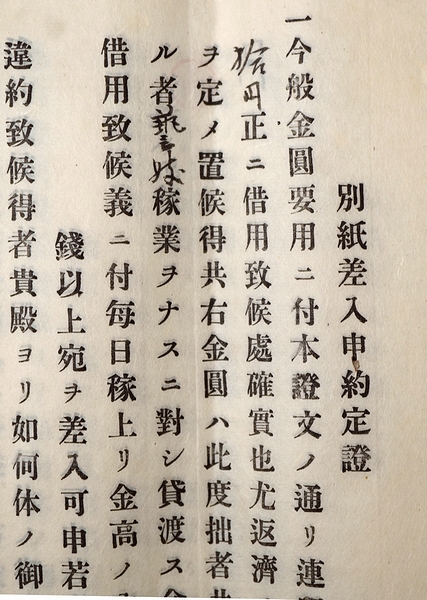 別紙差入申約定證
一今般金圓要用ニ付本證文ノ通リ連
拾円正ニ借用致候處確實也尤返濟
ヲ定メ置候得共右金圓ハ此度拙者
ル者 稼業ヲナスニ對シ貸渡ス
借用致候義ニ付每日稼上リ金高ノ
錢以上宛ヲ差入可申若
違約致候得者貴殿ヨリ如何体ノ御